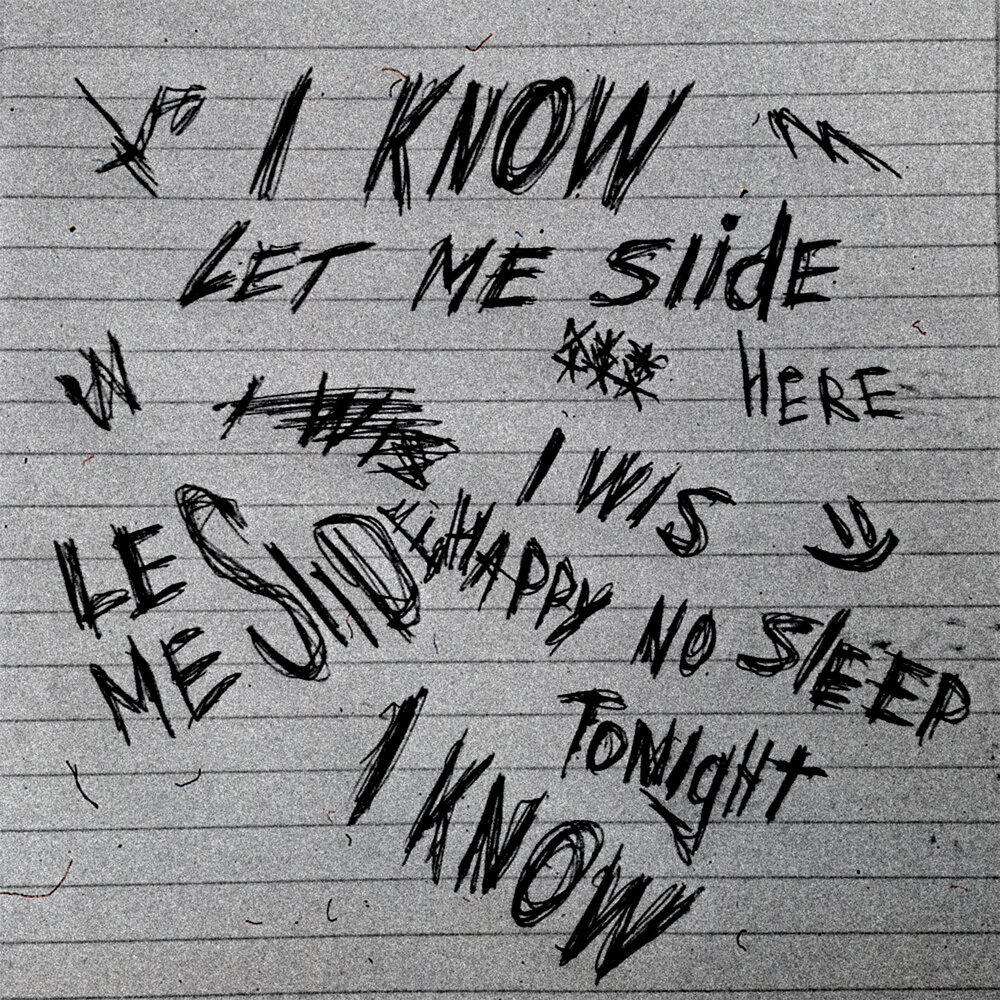 I KNOW
LET ME SlidE
HERE
I WIS
LE
ME SliD
HAPPY
NO SlEEP
TONigHt
I KNOW